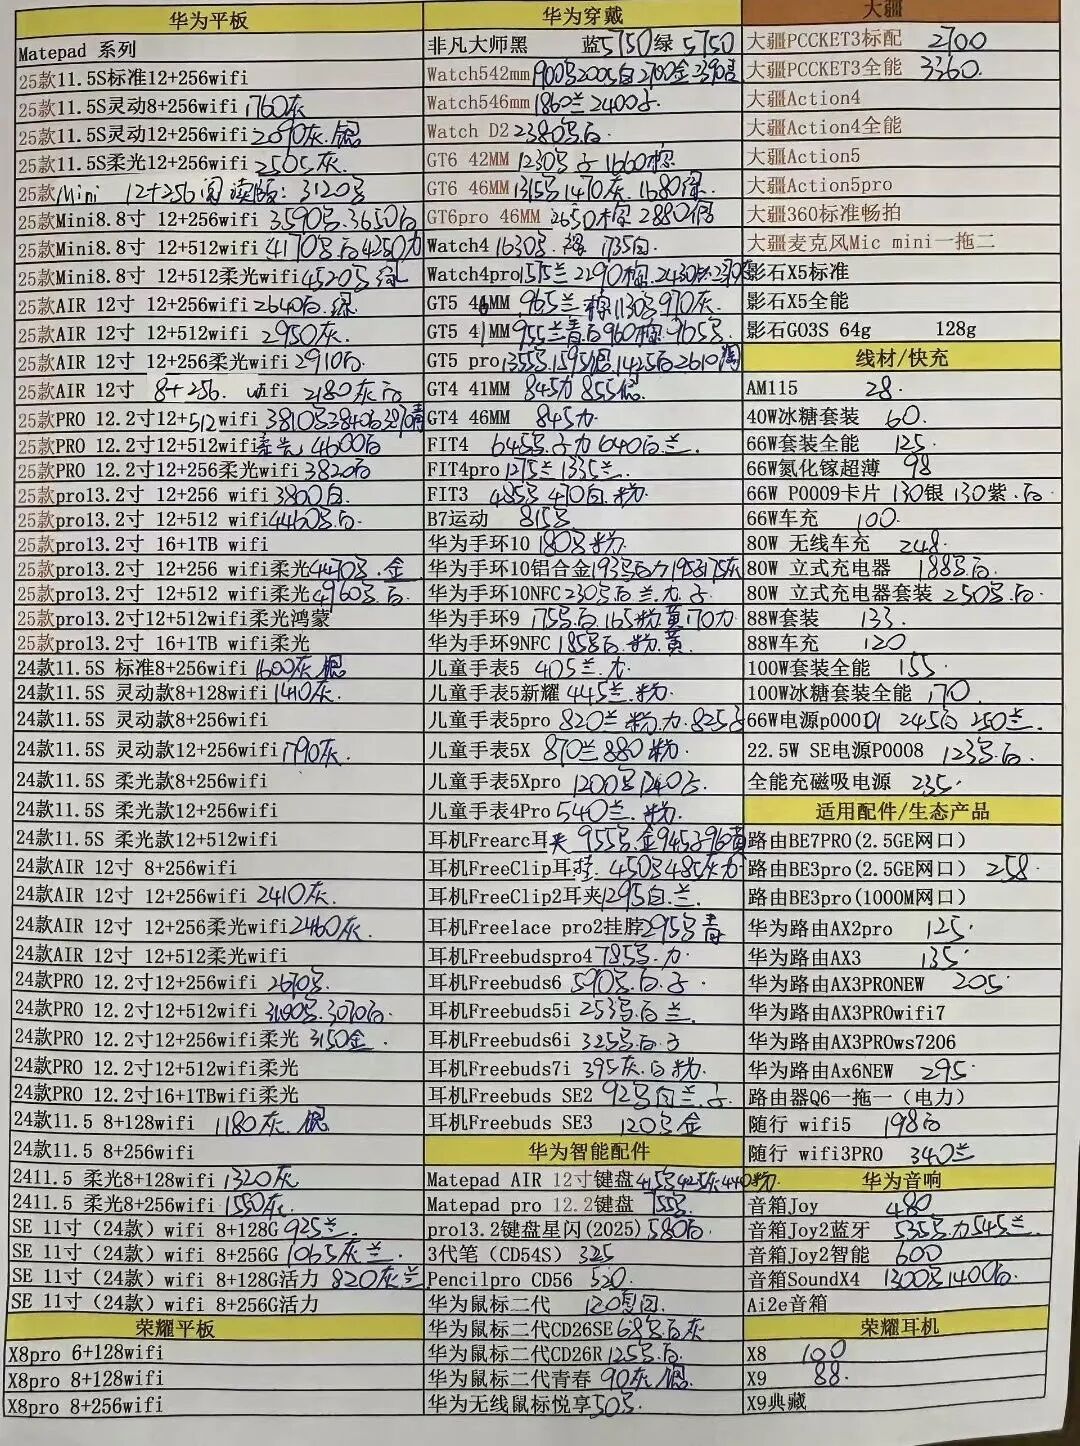 华为平板
Matepad 系列
25款11.5S标准12+256wifi
25款11.5S灵动8+256wifi 1760灰
25款11.5S灵动12+256wifi 2090灰.银
25款11.5S柔光12+256wifi 2505灰.
25款Mini 12+256阅读版: 3120
25款Mini8.8寸 12+256wifi 3590 3650白
25款Mini8.8寸 12+512wifi 4170 白4250
25款Mini8.8寸 12+512柔光wifi 4520
25款AIR 12寸 12+256wifi 2640白.绿
25款AIR 12寸 12+512wifi 2950灰.
25款AIR 12寸 12+256柔光wifi 2910白
25款AIR 12寸 8+256. wifi 2180灰白
25款PRO 12.2寸12+512wifi 3810 3840白
25款PRO 12.2寸12+512wifi柔光 4600白
25款PRO 12.2寸 12+256柔光wifi 3820白
25款pro13.2寸 12+256 wifi 3800白
25款pro13.2寸 12+512 wifi 4460 白
25款pro13.2寸 16+1TB wifi
25款pro13.2寸 12+256 wifi柔光4440 .金
25款pro13.2寸 12+512 wifi柔光4960 白
25款pro13.2寸12+512wifi柔光鸿蒙
25款pro13.2寸 16+1TB wifi柔光
24款11.5S 标准8+256wifi 1600灰 银
24款11.5S 灵动款8+128wifi 1410灰.
24款11.5S 灵动款8+256wifi
24款11.5S 灵动款12+256wifi 1790灰.
24款11.5S 柔光款8+256wifi
24款11.5S 柔光款12+256wifi
24款11.5S 柔光款12+512wifi
24款AIR 12寸 8+256wifi
24款AIR 12寸 12+256wifi 2410灰.
24款AIR 12寸 12+256柔光wifi 2460灰.
24款AIR 12寸 12+512柔光wifi
24款PRO 12.2寸12+256wifi 2670
24款PRO 12.2寸12+512wifi 3070白
24款PRO 12.2寸12+256wifi柔光 3150金.
24款PRO 12.2寸12+512wifi柔光
24款PRO 12.2寸16+1TBwifi柔光
24款11.5 8+128wifi 1180灰.银
24款11.5 8+256wifi
2411.5 柔光8+128wifi 1320灰
2411.5 柔光8+256wifi 1550灰.
SE 11寸（24款）wifi 8+128G 925兰.
SE 11寸（24款）wifi 8+256G 1065灰兰.
SE 11寸（24款）wifi 8+128G活力 820灰兰
SE 11寸（24款）wifi 8+256G活力
荣耀平板
X8pro 6+128wifi
X8pro 8+128wifi
X8pro 8+256wifi
华为穿戴
非凡大师黑 蓝5750绿 5750
Watch542mm 1900 2005白2700金
Watch546mm 1860兰2400子.
Watch D2 2380 白.
GT6 42MM 1230 子 1660棕
GT6 46MM 1315 1470灰.1680绿
GT6pro 46MM 2650棕 2880银
Watch4 1630 .棕 1735白
Watch4pro 1575兰2290棕.2430粉
GT5 46MM 965兰.棕1130 970灰
GT5 41MM 955兰青白960棕.965
GT5 pro 1355 1595银1425白2610
GT4 41MM 845 855银.
GT4 46MM 845
FIT4 645 子 640白兰.
FIT4pro 1275兰1335兰.
FIT3 485 470白.粉.
B7运动 815
华为手环10 180 粉.
华为手环10铝合金193 白 195 175灰
华为手环10NFC 230 白兰. 子
华为手环9 175 白165粉.黄170
华为手环9NFC 185 白.粉.黄.
儿童手表5 405兰.
儿童手表5新耀 445兰.粉.
儿童手表5pro 820兰粉. 825子
儿童手表5X 870兰880粉.
儿童手表5Xpro 1200 1240
儿童手表4Pro 540兰.粉.
耳机Frearc耳夹 955 .金945子
耳机FreeClip耳挂. 450 485灰
耳机FreeClip2耳夹1295白.兰.
耳机Freelace pro2挂脖295 青
耳机Freebudspro4 785 .
耳机Freebuds6 590 .白.子
耳机Freebuds5i 253 .白兰.
耳机Freebuds6i 325 白.子
耳机Freebuds7i 395灰.白粉.
耳机Freebuds SE2 92 白兰.子.
耳机Freebuds SE3 120 金
华为智能配件
Matepad AIR 12寸键盘 415 425灰440粉.
Matepad pro 12.2键盘 755
pro13.2键盘星闪(2025) 580白
3代笔（CD54S） 325
Pencilpro CD56 520.
华为鼠标二代 120
华为鼠标二代CD26SE 68 白灰
华为鼠标二代CD26R 125 白.
华为鼠标二代青春 90灰.银.
华为无线鼠标悦享 50
大疆
大疆PCCKET3标配 2700
大疆PCCKET3全能 3360.
大疆Action4
大疆Action4全能
大疆Action5
大疆Action5pro
大疆360标准畅拍
大疆麦克风Mic mini一拖二
影石X5标准
影石X5全能
影石GO3S 64g 128g
线材/快充
AM115 28.
40W冰糖套装 60.
66W套装全能 125.
66W氮化镓超薄 98
66W P0009卡片 130银 130紫.白
66W车充 100.
80W 无线车充 248.
80W 立式充电器 188 白.
80W 立式充电器套装 250 白.
88W套装 133.
88W车充 120
100W套装全能 155.
100W冰糖套装全能 170.
66W电源p0001 245白 250兰.
22.5W SE电源P0008 123 白.
全能充磁吸电源 235.
适用配件/生态产品
路由BE7PRO(2.5GE网口)
路由BE3pro(2.5GE网口) 258.
路由BE3pro(1000M网口)
华为路由AX2pro 125.
华为路由AX3 135.
华为路由AX3PRONEW 205.
华为路由AX3PROwifi7
华为路由AX3PROws7206
华为路由Ax6NEW 295.
路由器Q6一拖一（电力）
随行 wifi5 198白
随行 wifi3PRO 340兰
华为音响
音箱Joy 480
音箱Joy2蓝牙 535 545兰.
音箱Joy2智能 600
音箱SoundX4 1300 1400白.
Ai2e音箱
荣耀耳机
X8 100
X9 88.
X9典藏